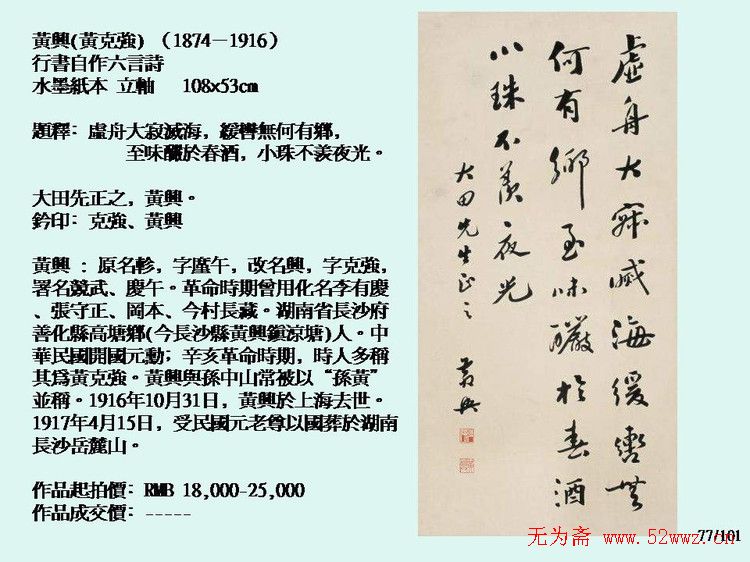 黃興(黃克強) （1874－1916）
行書自作六言詩
水墨紙本 立軸 108x53cm
題釋: 虛舟大寂滅海, 緩轡無何有鄉,
至味釅於春酒, 小珠不羨夜光。
大田先正之, 黃興。
鈐印: 克強、黃興
黃興 : 原名軫, 字廑午, 改名興, 字克強,
署名競武、慶午。革命時期曾用化名李有慶
、張守正、岡本、今村長藏。湖南省長沙府
善化縣高塘鄉(今長沙縣黃興鎮涼塘)人。中
華民國開國元勳; 辛亥革命時期, 時人多稱
其爲黃克強。黃興與孫中山常被以“孫黃”
並稱。1916年10月31日, 黃興於上海去世。
1917年4月15日, 受民國元老尊以國葬於湖南
長沙岳麓山。
作品起拍價: RMB 18,000-25,000
作品成交價: -----
虛舟大寂滅海緩轡無
何有鄉至味釅於春酒
小珠不羨夜光
大田先生正之
黃興
无为斋 www.52wwz.cn
77/101